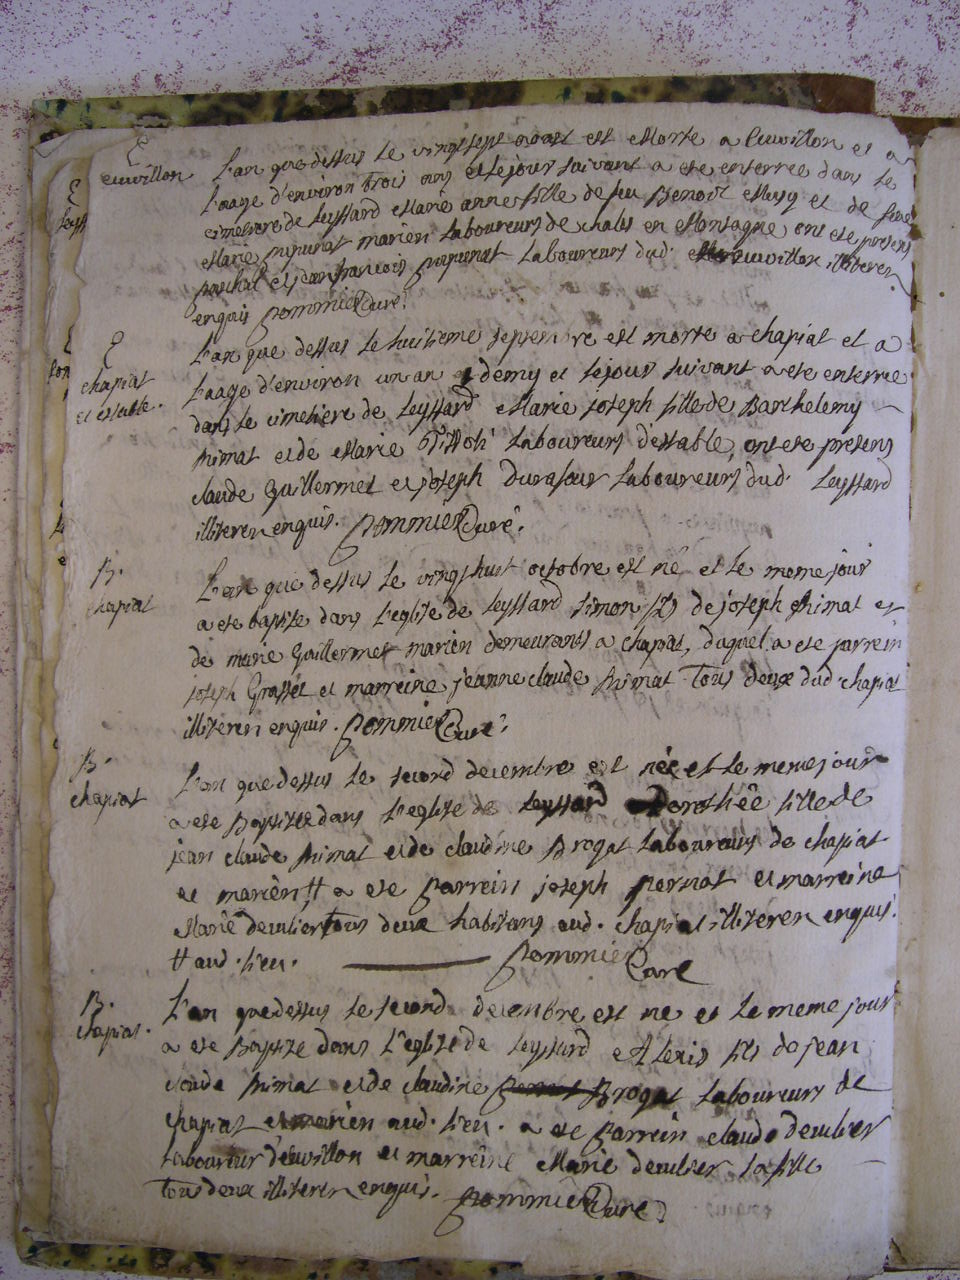 E
euvillon
L'an que dessus le vingtsept aoust est Morte a Euvillon et a
l'aage d'environ trois ans et le jour suivant a ete enterree dans le
cimetiere de Leyssard Marie anne fille de feu Benoit et de feue
Marie mariên Laboureurs de en Montagne ont ete presens
paschal et jean francois Laboureurs dud. euvillon illiteres
enquis Pommier Curé.
E
chapiat
et estable.
L'an que dessus le huitieme septembre est morte a chapiat et a
l'aage d'environ un an et demy et le jour suivant a ete enterree
dans le cimetiere de Leyssard Marie Joseph fille de Barthelemy
Nimat et de Marie Laboureurs d'estable, ont ete presens
claude Guillermet et joseph Durafour Laboureurs dud. Leyssard
illiteres enquis. Pommier Curé.
B.
chapiat
L'an que dessus le vingthuit octobre est né et le meme jour
a ete baptize dans l'eglize de Leyssard Simon fils de joseph Nimat et
de marie Guillermet mariên demeurants a chapiat, duquel a ete parrein
joseph Grasset et marreine jeanne claude Nimat tous deux dud. chapiat
illiteres enquis. Pommier Curé.
B.
chapiat
L'an que dessus le second decembre est née et le meme jour
a ete Baptizée dans l'eglize de Leyssard Dorothée fille de
jean claude Nimat et de claudine Brogat Laboureurs de chapiat
et mariên # a ete Parrein joseph Pernat et marreine
Marie deculier tous deux habitans aud. chapiat illiteres enquis.
# aud. lieu. Pommier Curé
B.
chapiat.
L'an que dessus le second decembre est né et le meme jour
a ete Baptize dans l'eglize de Leyssard Alexis fils de jean
claude Nimat et de claudine Brogat Laboureurs de
chapiat et mariên aud. lieu. a ete Parrein claude deculier
Laboureur d'euvillon et marreine Marie deculier sa fille
tous deux illiteres enquis. Pommier Curé